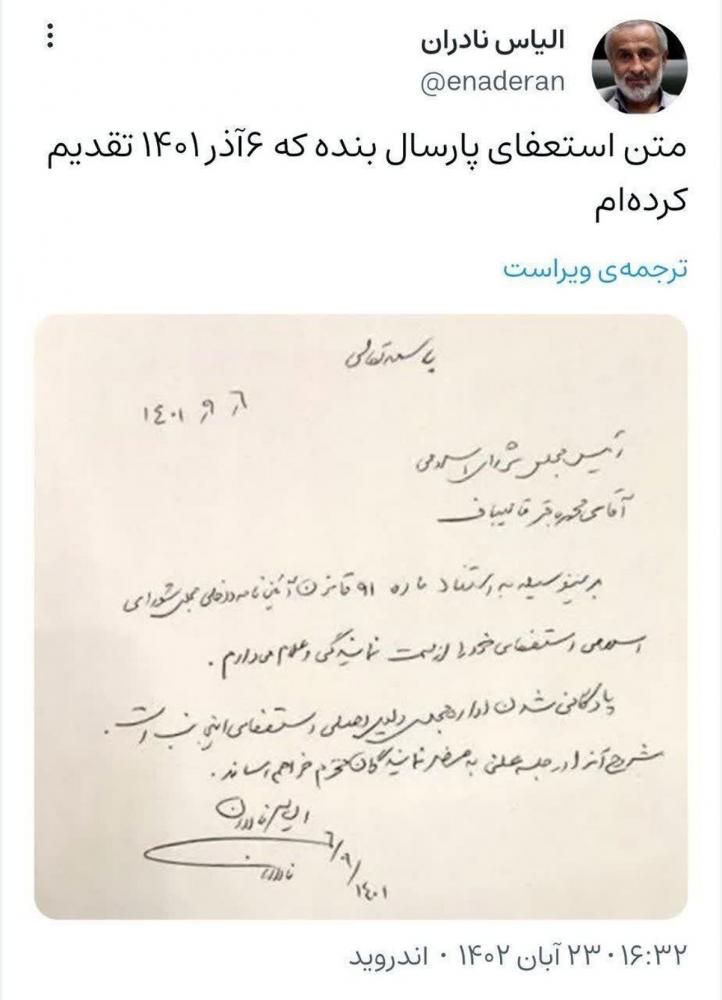 الیاس نادران
@enaderan
متن استعفای پارسال بنده که ۶آذر۱۴۰۱ تقدیم
کرده‌ام
ترجمه‌ی ویراست
باسمه‌تعالی
۱۴۰۱ ر۹ ر۶
رئیس مجلس شورای اسلامی
آقای محمدباقر قالیباف
بدینوسیله به استناد ماده ۹۱ قانون آئین‌نامه داخلی مجلس شورای
اسلامی استعفای خود را از سمت نمایندگی اعلام می‌دارم.
پادگانی شدن اداره مجلس دلیل اصلی استعفای اینجانب است.
شرح آنرا در جلسه علنی به محضر نمایندگان محترم خواهم رساند.
الیاس نادران
۱۴۰۱/۹/۶
نادران
۱۶:۳۲ · ۲۳ آبان ۱۴۰۲ · اندروید